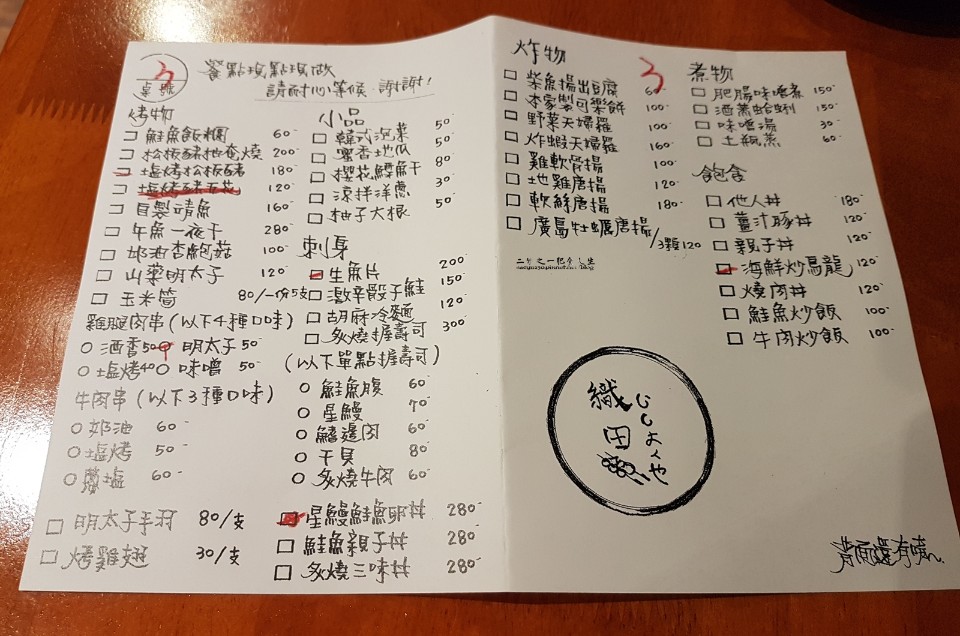 3
桌號
餐點現點現做
請耐心等候.謝謝!
烤物
鮭魚飯糰 60-
松板豬地奄燒 200-
塩烤松板豬 180
塩烤豬五花 120-
自製鯖魚 160-
午魚一夜干 280-
奶油杏鮑菇 100-
山藥明太子 120-
玉米筍 80/一份5
雞腿肉串(以下4種口味)
酒香50 明太子 50-
塩烤40 味噌 50-
牛肉串(以下3種口味)
奶油 60-
塩烤 50-
蔥塩 60-
明太子手羽 80/支
烤雞翅 30/支
小品
韓式泡菜 50-
蜜香地瓜 50-
櫻花鱈魚干 80-
涼拌洋蔥 30-
柚子大根 50-
刺身
生魚片 200-
激辛骰子鮭 150-
胡麻冷麵 120-
炙燒握壽司 300-
(以下單點握壽司)
鮭魚腹 60-
星鰻 70-
鰭邊肉 60-
干貝 80-
炙燒牛肉 60-
星鰻鮭魚卵丼 280-
鮭魚親子丼 280
炙燒三味丼 280-
3
炸物
柴魚揚出豆腐 60-
本家製可樂餅 100-
野菜天婦羅 100-
炸蝦天婦羅 160-
雞軟骨揚 100-
地雞唐揚 120-
軟絲唐揚 180-
廣島牡蠣唐揚/3顆120
煮物
肥腸味噌煮 150-
酒蒸蛤蜊 150-
味噌湯 30-
土瓶蒸 60-
飽食
他人丼 180-
薑汁豚丼 120-
親子丼 120-
海鮮炒烏龍 120-
燒肉丼 120-
鮭魚炒飯 100-
牛肉炒飯 100-
織田
背面還有唷